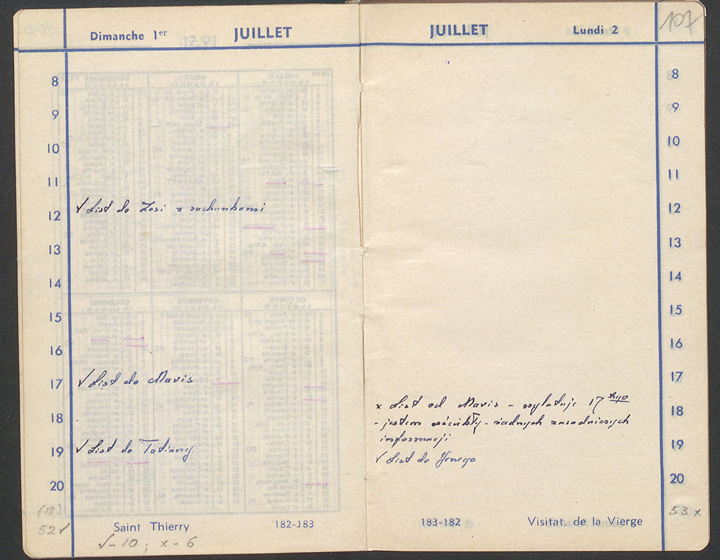 Dimanche 1er JUILLET
8
9
10
11
√ List do Zosi z rachunkami
12
13
14
15
16
17 √ List do Mavis
18
19 √ List do Tatiany
20
(12)
52 √
Saint Thierry 182-183
√-10 ; x-6
107
JUILLET Lundi 2
8
9
10
11
12
13
14
15
16
17
x List od Mavis - wylatuje 17 tego
18
- jestem wściekły - żadnych zasadniczych
informacji
19
√ List do
20
53 x
183-182 Visitat. de la Vierge